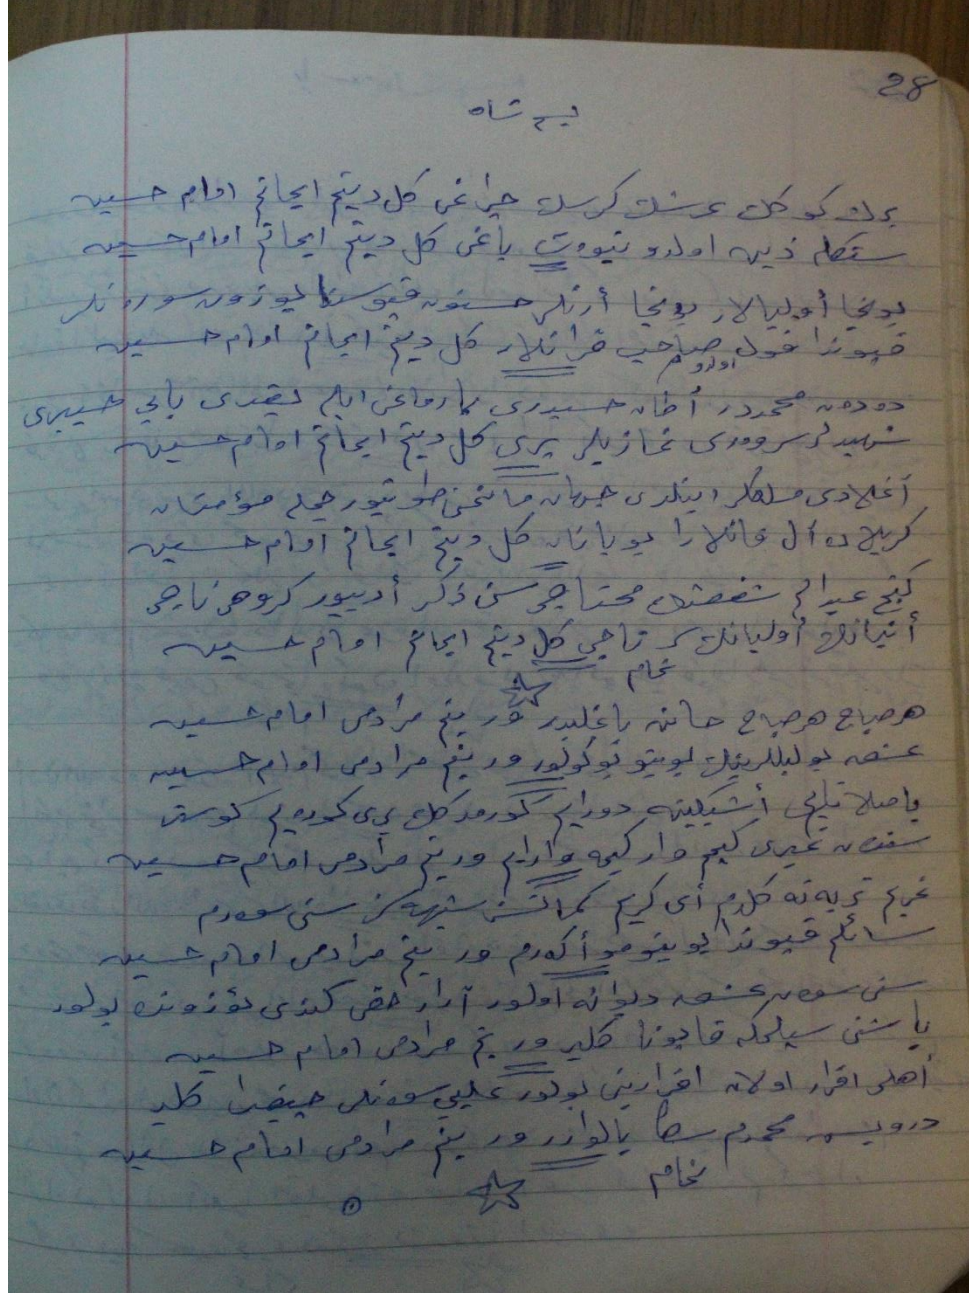 28
بسم شاه
يرك كوكك عرشك كرسك چراغى كل ديتم ايجاتم امام حسين
ستكلم ذين اولدو نيووت باغى كل ديتم ايجاتم امام حسين
بونجا أوليالار بونجا أرنلر حسنون قپوسنا يوزون سورنلر
قپوندا قول صاحب قرانلار كل ديتم ايجاتم امام حسين
اولدوم
دوده محمددر أطان حسيدرى پارماغى ايلم يقدى بابى حيبرى
شهيدلر سرودرى غازيلر پرى كل ديتم ايجاتم امام حسين
آغلادى ملكلر اينلدى جهان ماتمى طوتيور جمله مؤمنان
كربلاده آل قانلارا بويانان كل ديتم ايجاتم امام حسين
كنج عبدالم شفعتك محتاجى سنى ذكر أدييور كروهى ناجى
أنبيانك أوليانك سر تاجى كل ديتم ايجاتم امام حسين
تمام
هر صباح هر صباح باغلبر ور ينم مرادمى امام حسين
عشقه بولبللرينك بوينو بوكولور ور ينم مرادمى امام حسين
ياصلانايم أشيكينه دورايم كورمدكك يرى كوره يم كوستر
سندن غيرى كيم وار كيمه وارايم ور ينم مرادمى امام حسين
غريم تربه نه كلدم أى كريم كمالتس شبهه سز سنى سورم
سائلم قپوندا بوينومو أكدرم ور ينم مرادمى امام حسين
سنى سون عشقه ديوانه اولور آرار حقى كندى ئوزونده بولور
ياشنى سيلمكه قاپونا كلير ور ينم مرادمى امام حسين
أهلى اقرار اولان اقرارينى بولور عليى سونلر كلير
درويش محمدم سكا يالوارر ور ينم مرادمى امام حسين
تمام